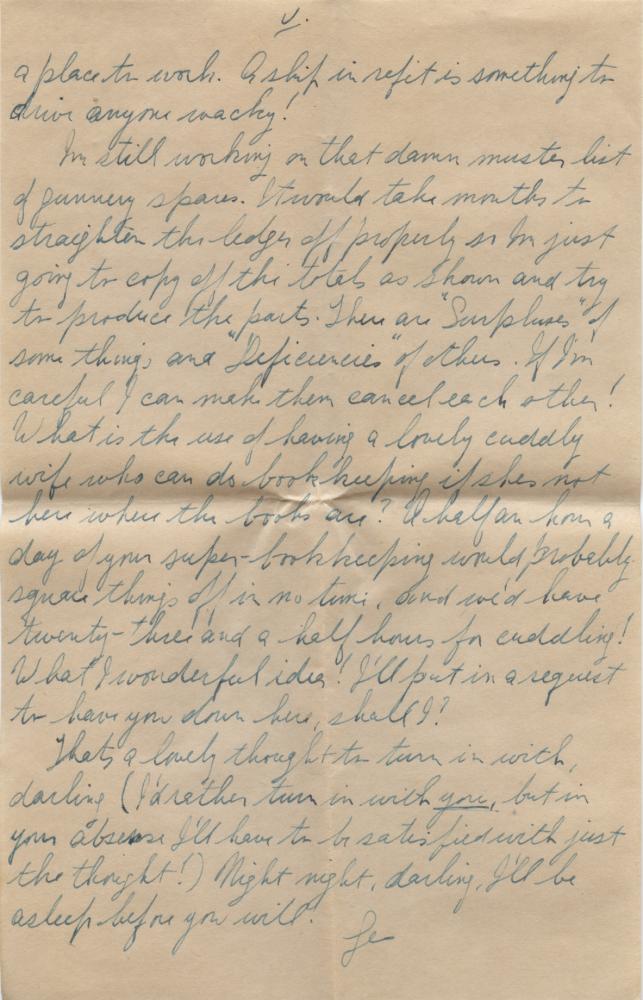 V.
a place to work. A ship in refit is something to
drive anyone wacky!
I'm still working on that damn muster list
of gunnery spares. It would take months to
straighten the ledger off properly so I'm just
going to copy off the totals as shown and try
to produce the parts. There are "Surpluses" of
some things and "Deficiencies" of others. If I'm
careful I can make them cancel each other!
What is the use of having a lovely cuddly
wife who can do bookkeeping if shes not
here where the books are? A half an hour a
day of your super-bookkeeping would probably
square things off in no time, and we'd have
twenty-three and a half hours for cuddling!
What a wonderful idea! I'll put in a request
to have you down here, shall I?
Thats a lovely thought to turn in with,
darling (I'd rather turn in with you, but in
your absense I'll have to be satisfied with just
the thought!) Night night, darling, I'll be
asleep before you will.